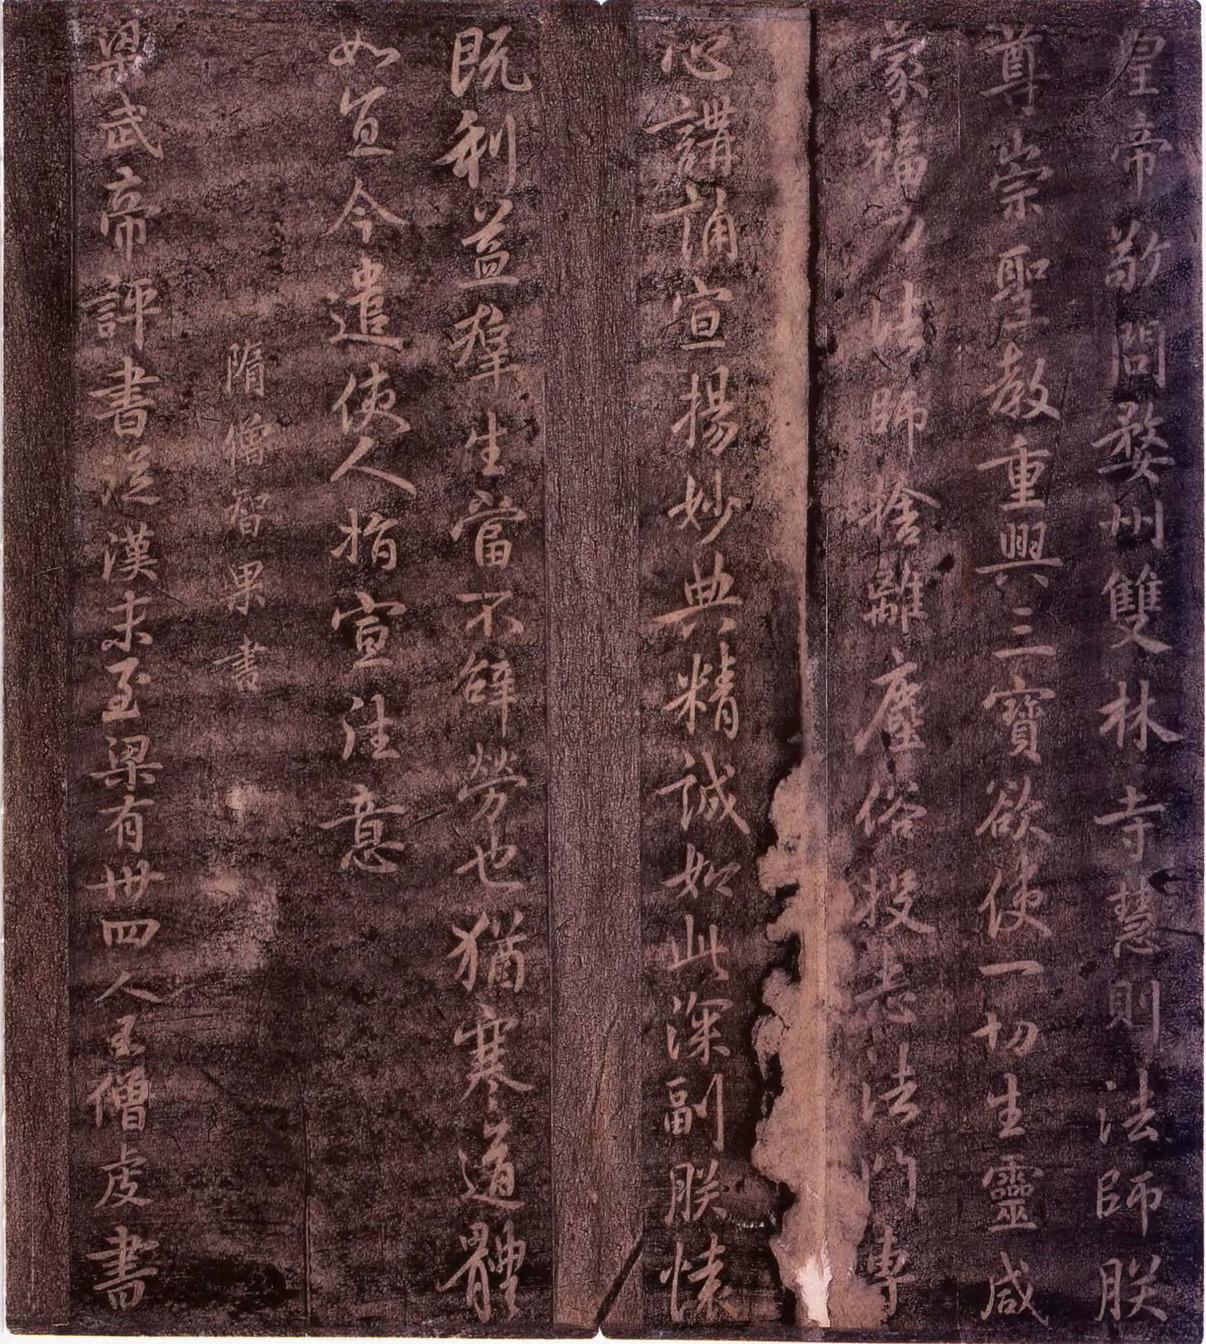 皇帝敬問婺州雙林寺慧則法師朕
尊崇聖教重興三寶欲使一切生靈咸
蒙福力法師捨離塵俗投志法門專
心講誦宣揚妙典精誠如此深副朕懐
既利益羣生當不辭勞也猶寒道體
如宜今遣使人指宣往意
隋僧智果書
梁武帝評書從漢末至梁有丗四人王僧虔書